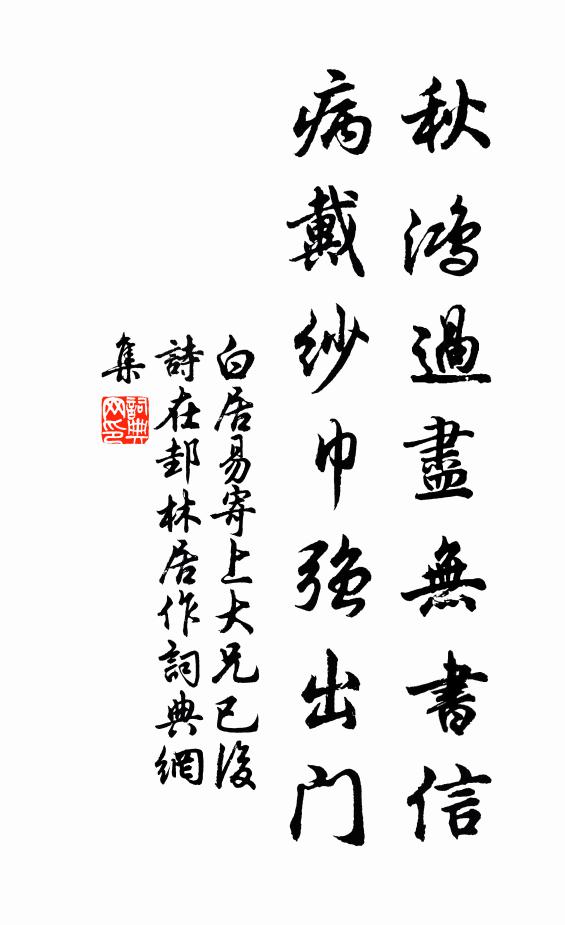 秋鴻過盡無書信
病戴紗巾強出門
白居易寄上大兄已後
詩在邽林居作詞典網
集
詞典網印